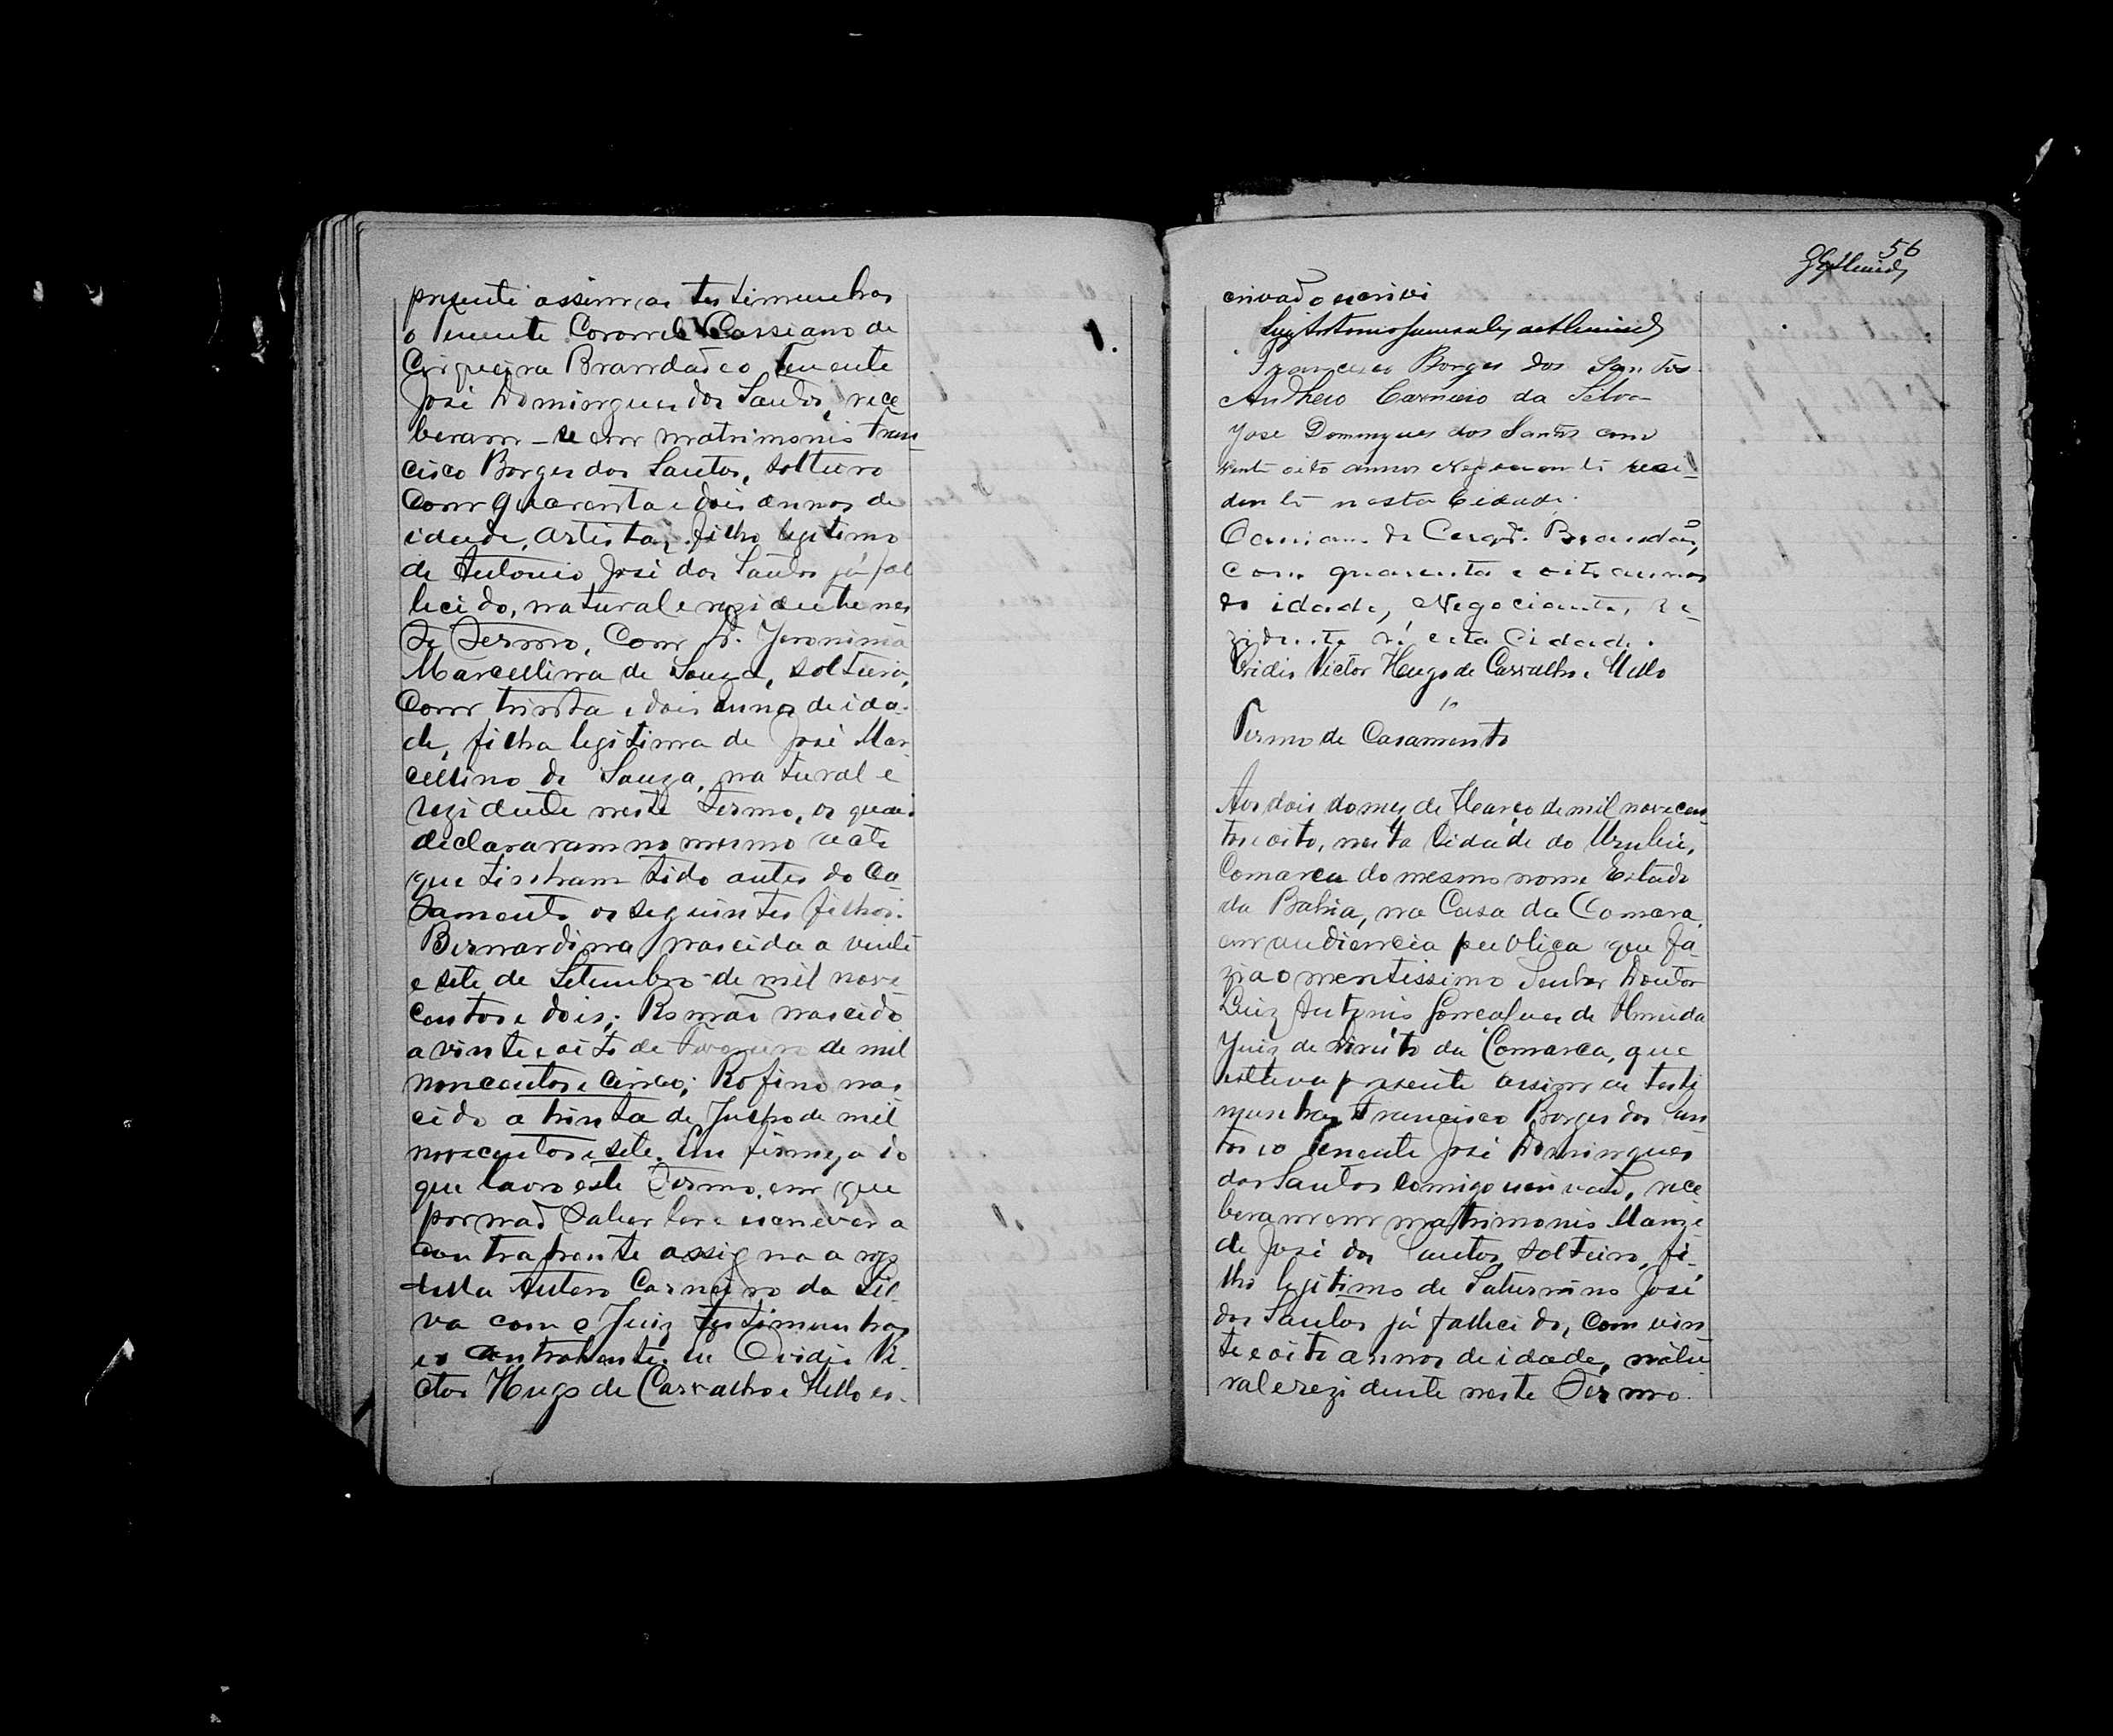 presente assim as testimunhas
o Tenente Coronel Cassiano de
Cirqueira Brandão e o Tenente
José Domingues dos Santos, rece
beram-se em matrimonio Fran
cisco Borges dos Santos, solteiro
com quarenta e dois annos de
idade, artista, filho legitimo
de Antonio José dos Santos já fal
lecido, natural e rezidente nes
te Termo, com D. Jeronima
Marcellina de Souza, solteira,
com trinta e dois annos de ida-
de, filha legitima de José Mar
cellino de Souza, natural e
rezidente neste Termo, os quais
declararam no mesmo acto
que tinham tido antes do Ca-
samento os seguintes filhos:
Bernardina nascida a vinte
e sete de Setembro de mil nove
centos e dois; Romão nascido
a vinte e oito de de mil
novecentos e cinco; Rofino nas
cido a trinta de Julho de mil
novecentos e sete. Em firmeza do
que lavro este Termo, em que
por não saber ler e escrever a
contrahente assigna a rogo
della Antero Carneiro da Sil-
va com o Juiz testimunhas
e o contrahente. eu Ovidio Vi-
ctor Hugo de Carvalho e Mello es-
56
GAlmeida
crivão o escrivi
Luiz Antonio Gonsalves de Almeida
Francisco Borges dos Santos
Anthero Carneiro da Silva
José Domingues dos Santos com
vinte oito annos Negociante resi-
dente nesta Cidade.
Cassiano de Cerqrª Brandão,
com quarenta e oito annos
de idade, Negociante, re-
zidente n'esta Cidade.
Ovidio Victor Hugo de Carvalho e Mello
Termo de Casamento
Aos dois do mez de Março de mil novecen
tos e oito, nesta Cidade do Urubú,
Comarca do mesmo nome Estado
da Bahia, na Casa da Camara
em audiencia publica que fa-
zia o meretissimo Senhor Doutor
Luiz Antonio Gonçalves de Almeida
Juiz de Direito da Comarca, que
estava presente assim as testi
munhas Francisco Borges dos San
tos e o Tenente José Domingues
dos Santos comigo escrivão, rece
beram em matrimonio
de José dos Santos, solteiro, fi-
lho legitimo de Saturnino José
dos Santos já fallecido, com vin
te e oito annos de idade, natu
ral e rezidente neste Termo